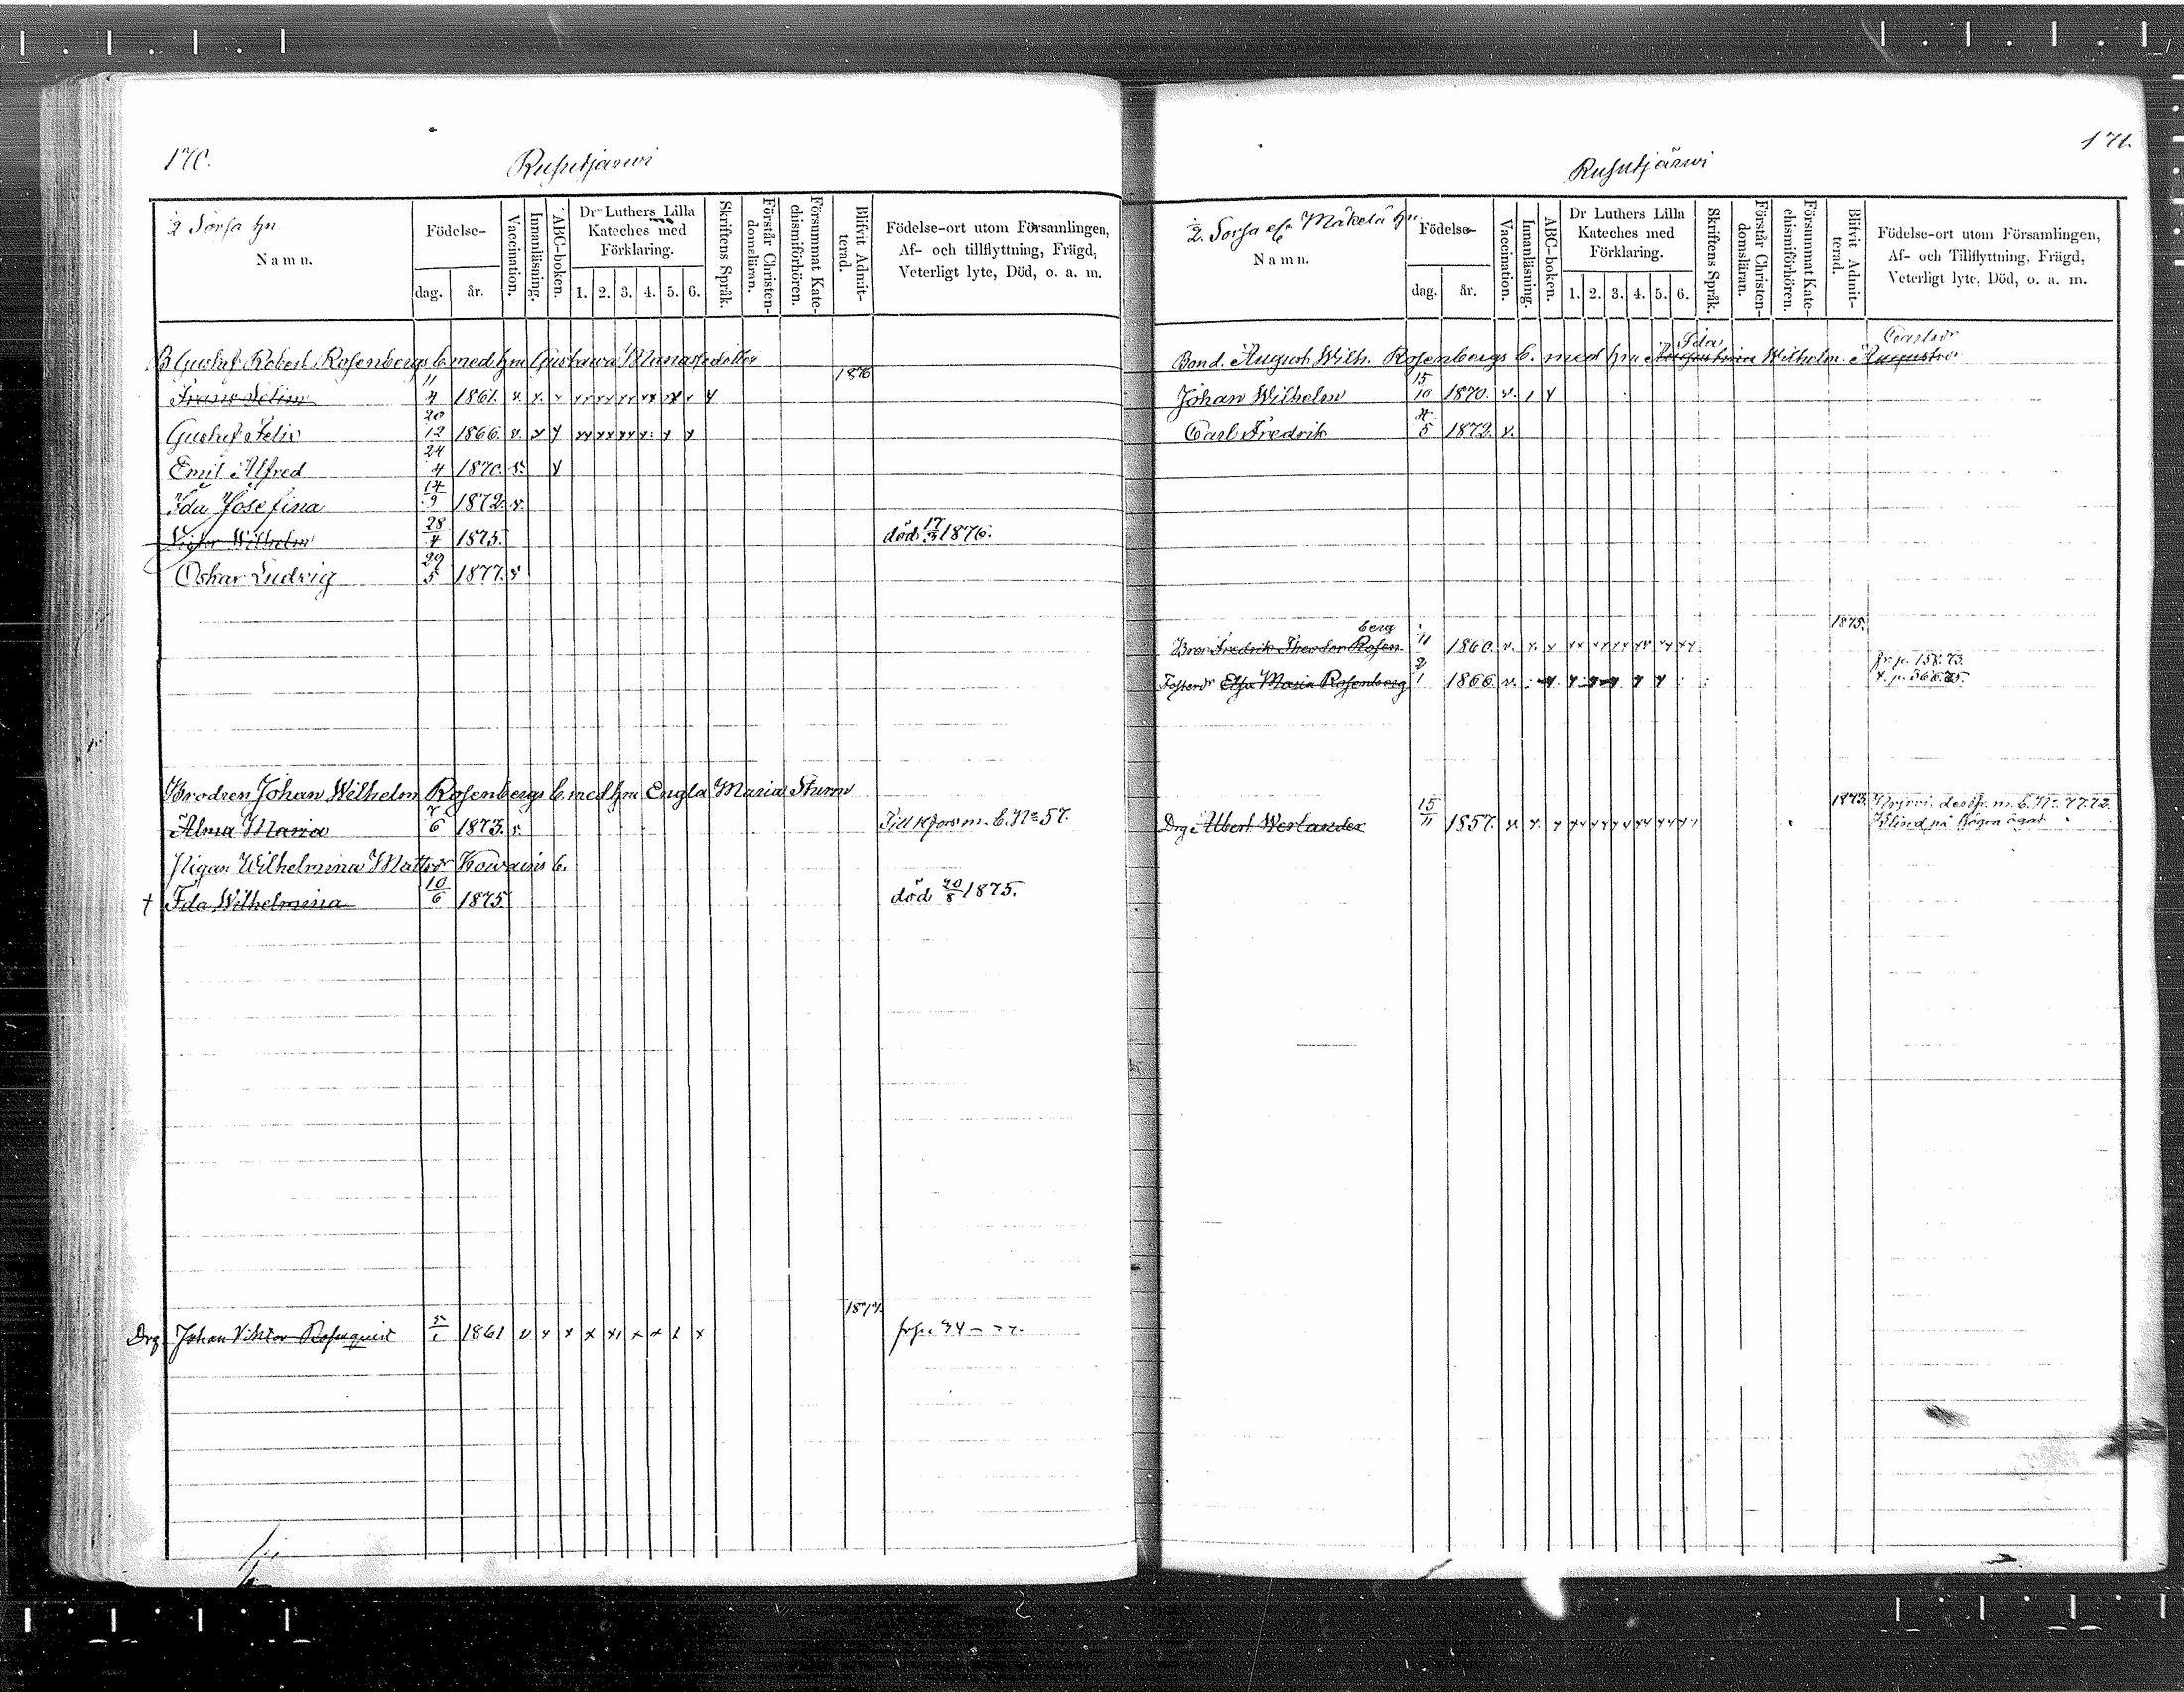 170.
Rusutjärwi
2 Sorsa hn
Namn.
Födelse-
dag.
år.
Vaccination.
Innanläsning.
ABC-boken.
Dr Luthers Lilla Kateches med Förklaring.
1. 2. 3. 4. 5. 6.
Skriftens Språk.
Förstår Christen-domsläran.
Försummat Kate-chismiförhören.
Blifvit Admit-terad.
Födelse-ort utom Församlingen,
Af- och tillflyttning, Frägd,
Veterligt lyte, Död, o. a. m.
B Gustaf Robert Rosenbergs b. med hu Gustawa Manassedotter
Frans Selim 11/4 1861. v. x. 1876
Gustaf Felix 20/12 1866. v.
Emil Alfred 24/4 1870. v.
Ida Josefina 14/9 1872. v.
Victor Wilhelm 28/4 1875. död 17/3 1876.
Oskar Ludvig 29/5 1877. v
Brodren Johan Wilhelm Rosenbergs b. med hu Engla Maria Sturm
Alma Maria 7/6 1873. v. Till H.fors m. b. No 57.
Pigan Wilhelmina Mattsdr b.
† Ida Wilhelmina 10/6 1875 död 20/8 1875.
Drg Johan Viktor Rosenqvist 5/1 1861 v x x x x x x x x 1877.
171.
Rusutjärwi
2. Sorsa e/r Mäkelä hn.
Namn.
Födelse-
dag.
år.
Vaccination.
Innanläsning.
ABC-boken.
Dr Luthers Lilla Kateches med Förklaring.
1. 2. 3. 4. 5. 6.
Skriftens Språk.
Förstår Christen-domsläran.
Försummat Kate-chismiförhören.
Blifvit Admit-terad.
Födelse-ort utom Församlingen,
Af- och Tillflyttning, Frägd,
Veterligt lyte, Död, o. a. m.
Ida Carlsdr
Bond. August Wilh. Rosenbergs b. med hu Augustina Wilhelm. Augustdr
Johan Wilhelm 15/10 1870. v.
Carl Fredrik 4/5 1872. v.
berg 1875.
Bror Fredrik Theodor Rosen 11 1860. v.
Fosterdr Elsa Maria Rosenberg 2/1 1866 v. fr. p. 158. 73.
Drg Albert Werlander 15/11 1857. v. 1873.
Blind på högra ögat